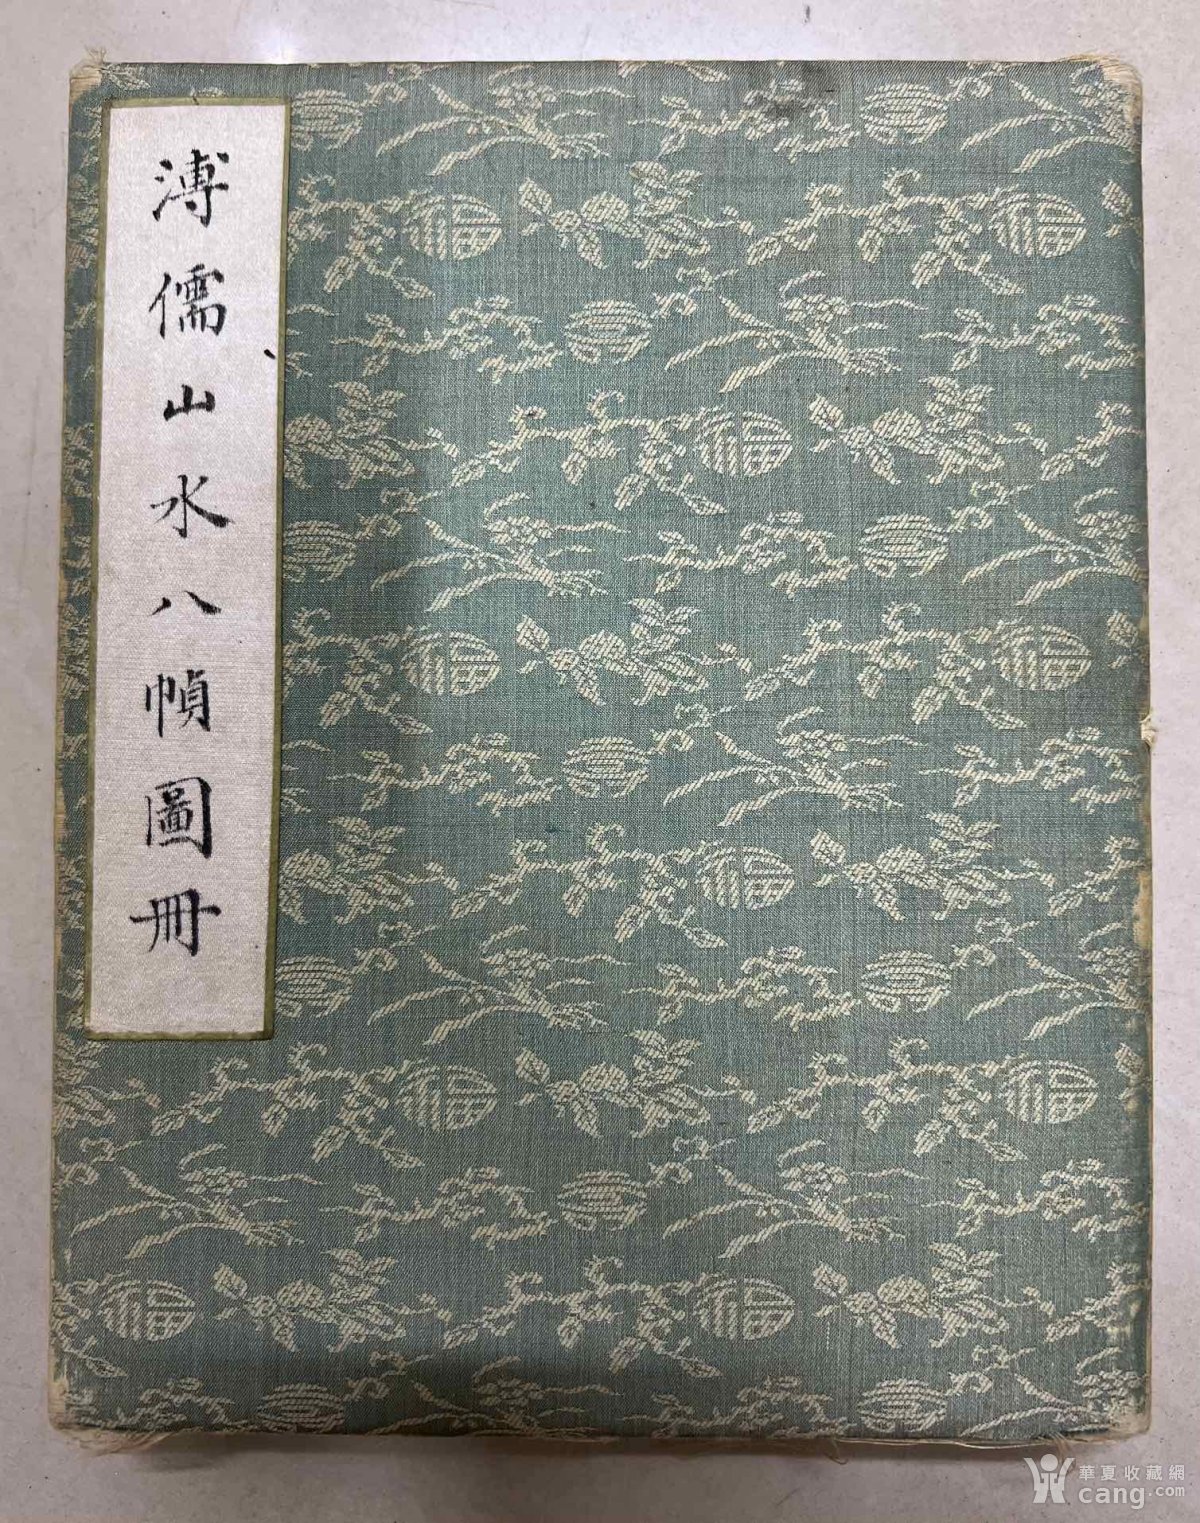 溥儒山水八幀圖冊
華夏收藏網
cang.com